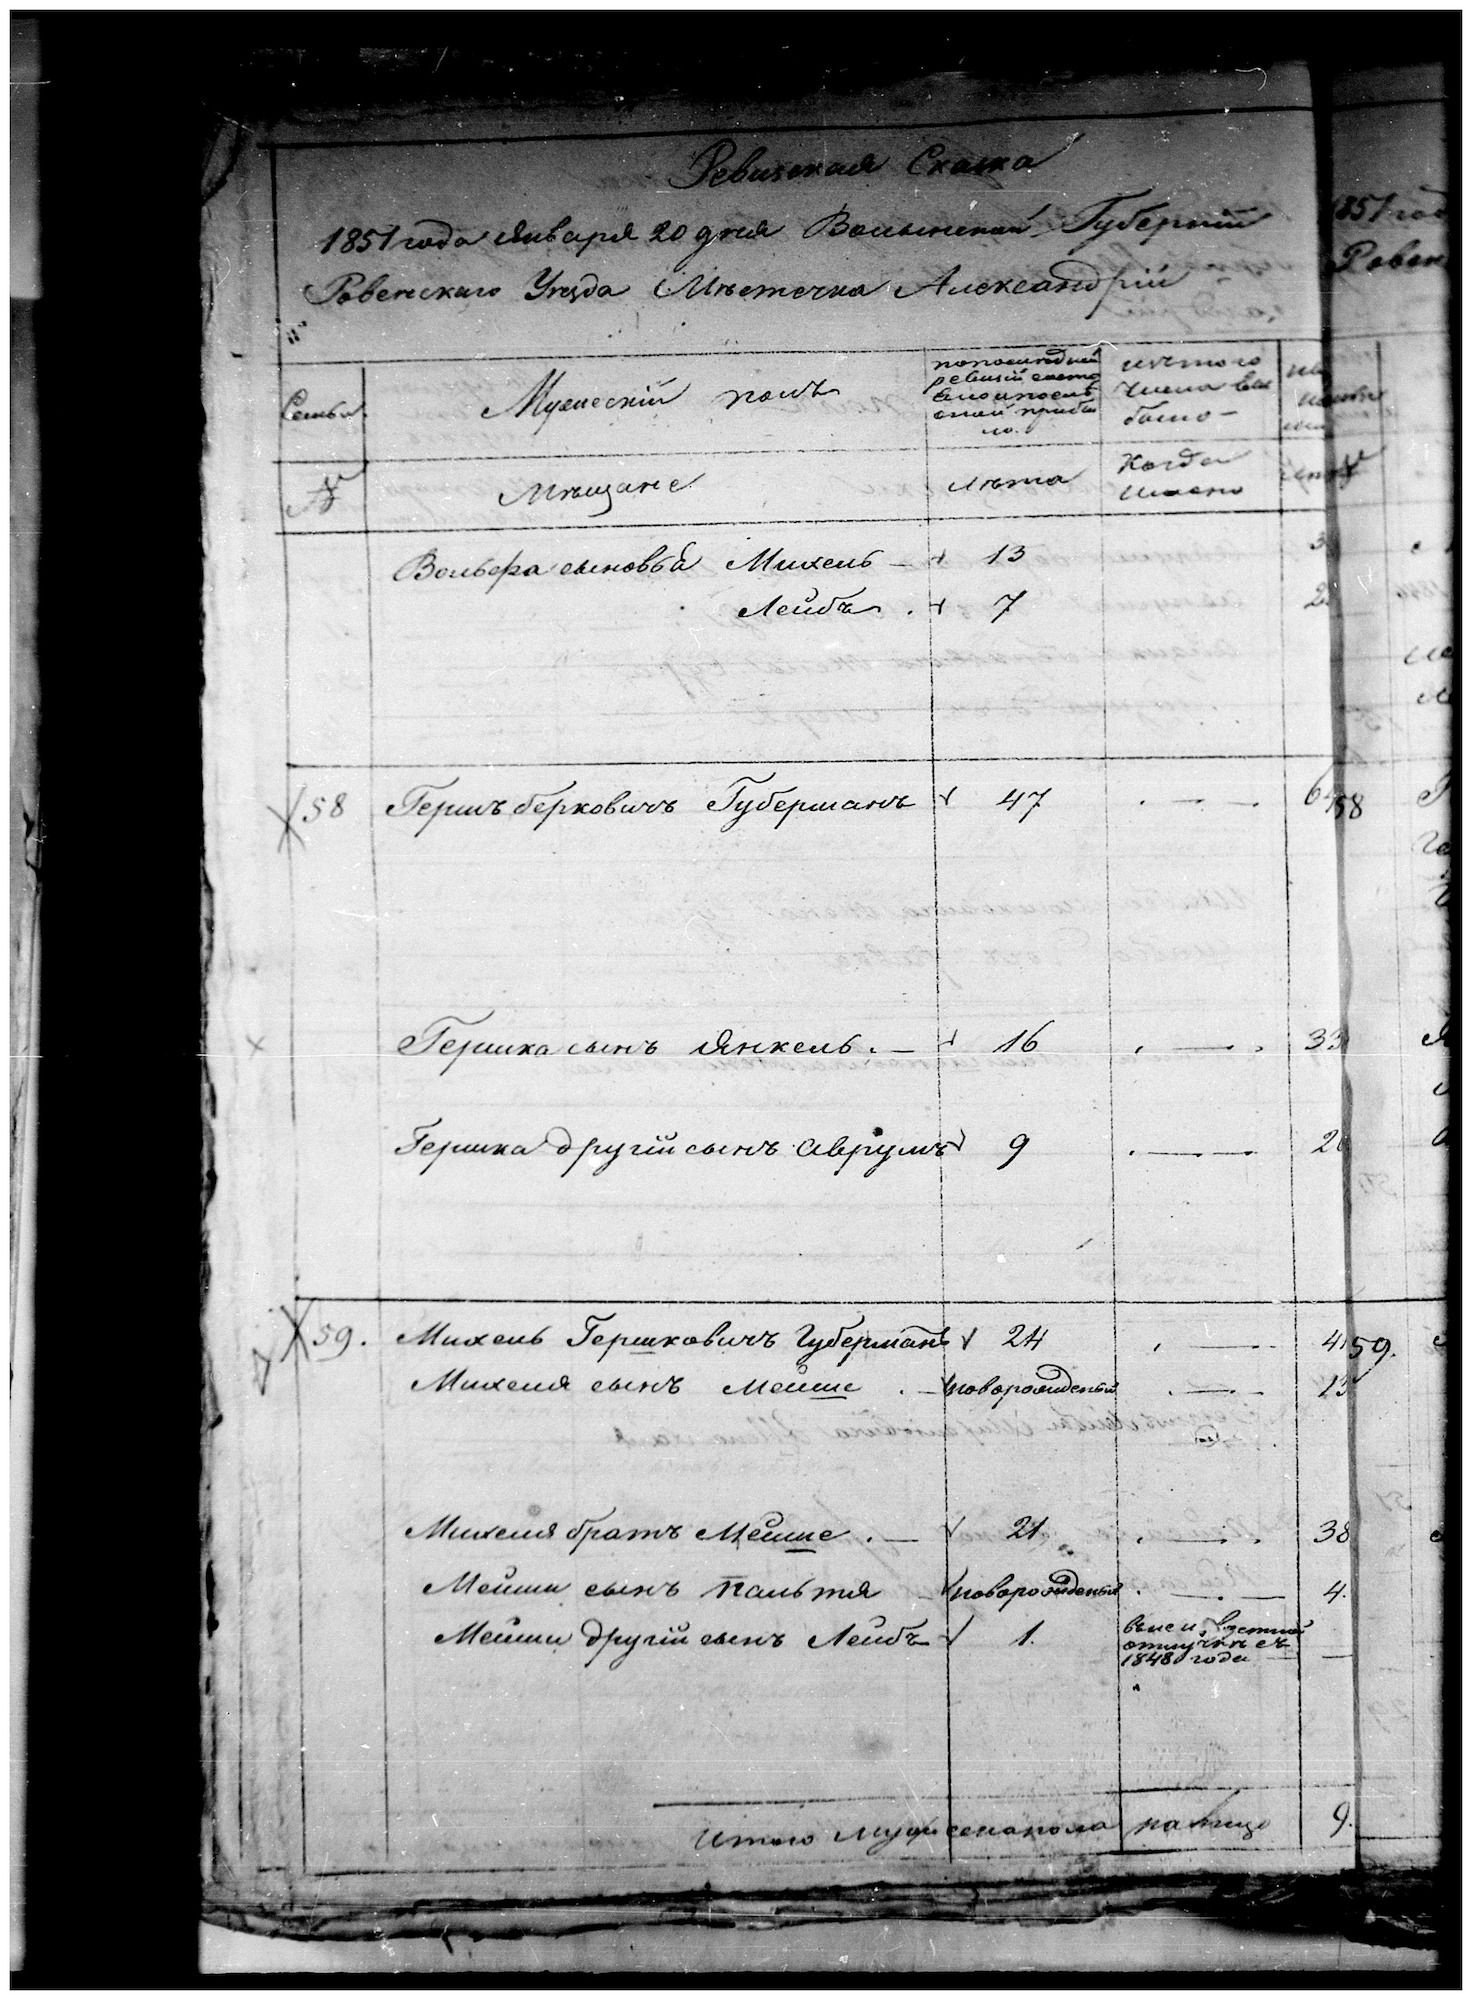 Ревизская Сказка
1851 года Января 20 дня Волынской Губернии
Ровенскаго Уезда Местечка Александрій
Семьи
Мужескій полъ
по последней
ревизіи состо
яло и после
оной прибы
ло.
изъ того
числа вы
было -
№
Мещане
лета
Когда
имено
Вольфа сыновья Михель - 13
Лейбъ . 7
58 Гершъ Берковичъ Губерманъ 47 . — . 58
Гершка сынъ Янкель . — 16 . — . 33
Гершка другій сынъ Аврумъ 9 . — .
59. Михель Гершковичъ Губерманъ 24 . — 59.
Михеля сынъ Мейше . — новорожденый . — . 13
Михеля братъ Мейше . — 21 . — . 38
Мейши сынъ Пальтя - новорожденый . — 4.
Мейши другій сынъ Лейбъ 1.
отлучке съ
1848 года
Итого мужеска пола на лицо 9.